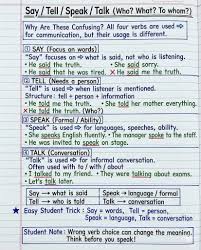 Say / Tell / Speak / Talk (Who? What? To whom?)
Why Are These Confusing? All four verbs are used
for communication, but their usage is different.
① SAY (Focus on words)
"Say" focuses on what is said, not who is listening.
• He said the truth. • She said sorry.
• He said that he was tired. × He said me the truth.
② TELL (Needs a person)
"Tell" is used when listener is mentioned.
Structure: tell + person + information
• He told me the truth. • She told her mother everything.
× He told the truth. (Who?)
③ SPEAK (Formal / Ability)
"Speak" is used for languages, speeches, ability.
• She speaks English fluently. • The manager spoke to the staff.
• He was invited to speak on stage.
④ TALK (Conversation)
"Talk" is used for informal conversation.
Often used with to / with / about
• I talked to my friend. • They were talking about exams.
• Let's talk later.
Say → what is said Speak → language / formal
Tell → who is told Talk → conversation
★ Easy Student Trick: Say = words, Tell = person,
Speak = language, Talk = conversation
Student Note: Wrong verb choice can change the meaning.
Think before you speak!